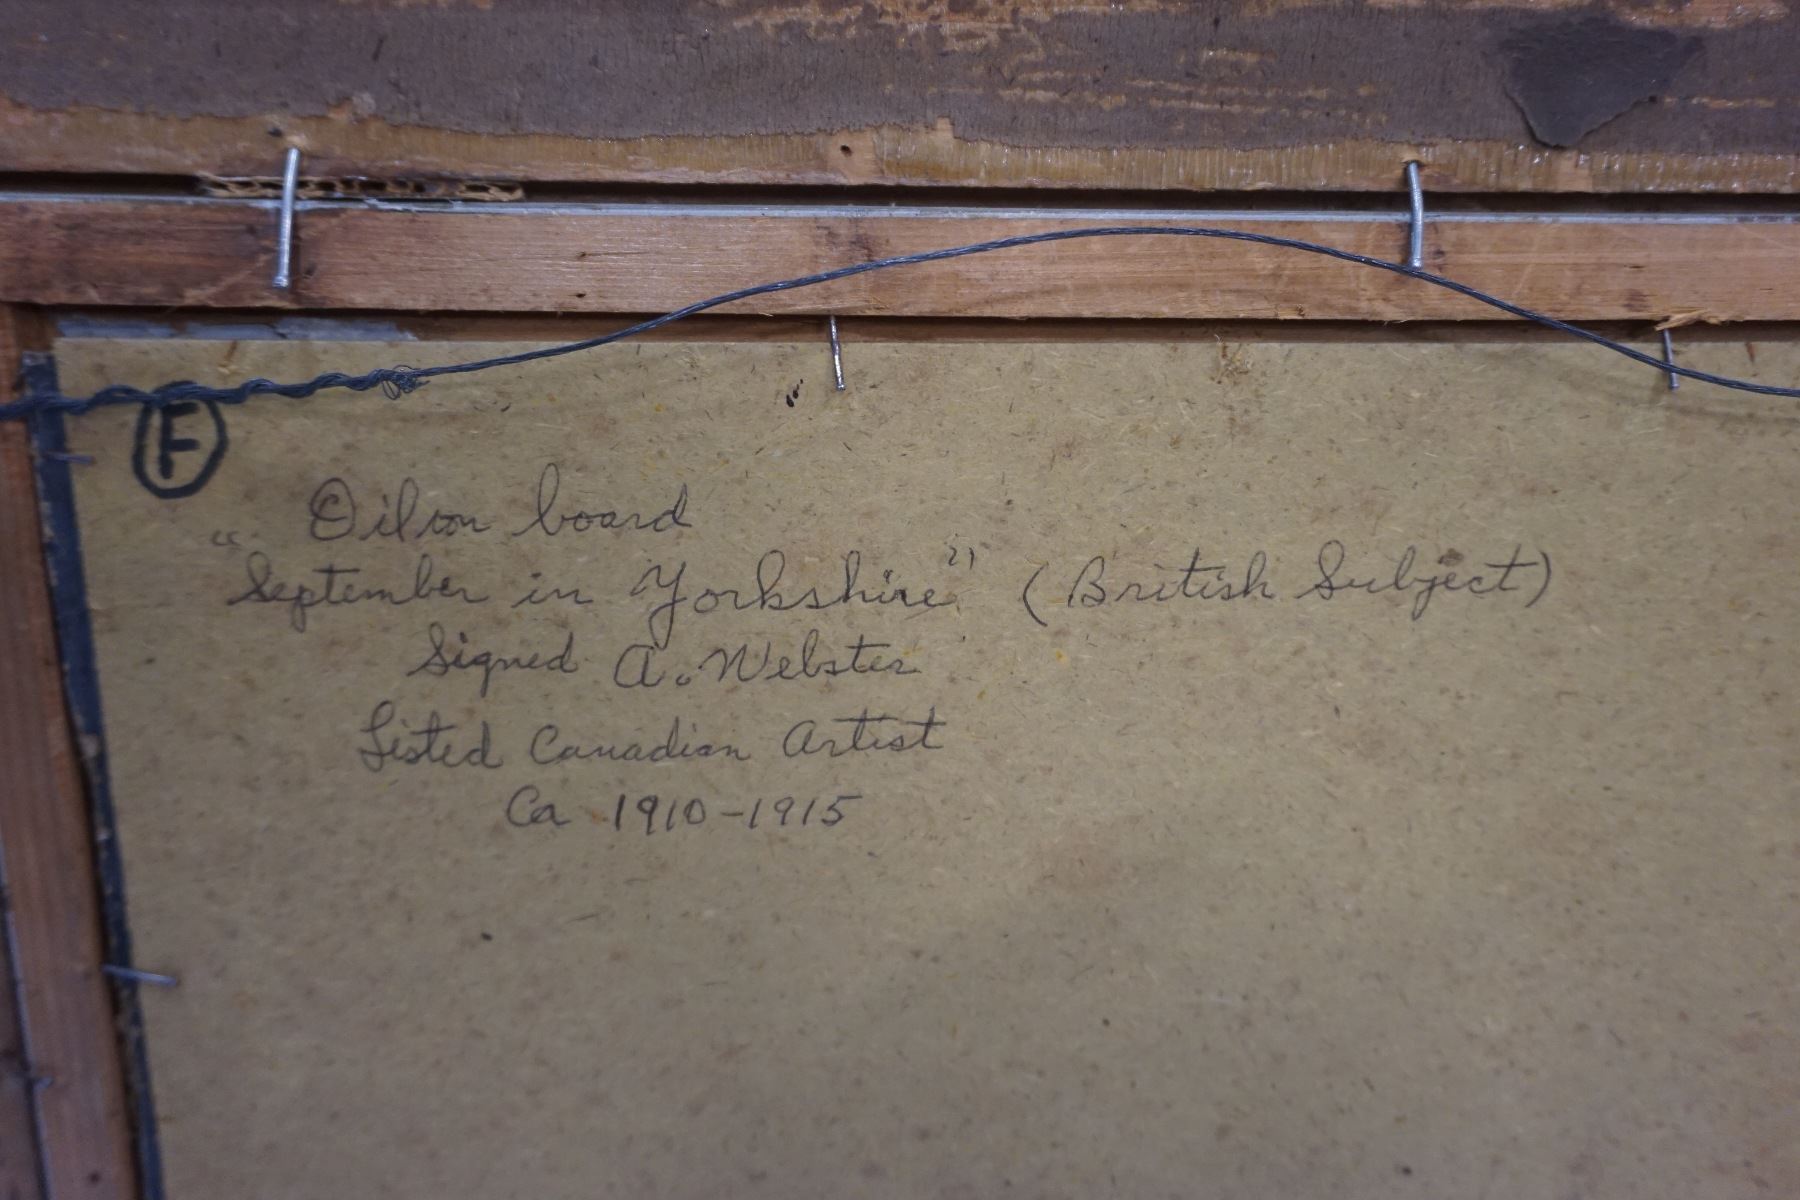 F
Oil on board
"September in Yorkshire" (British Subject)
Signed A. Webster
Listed Canadian Artist
Ca 1910-1915